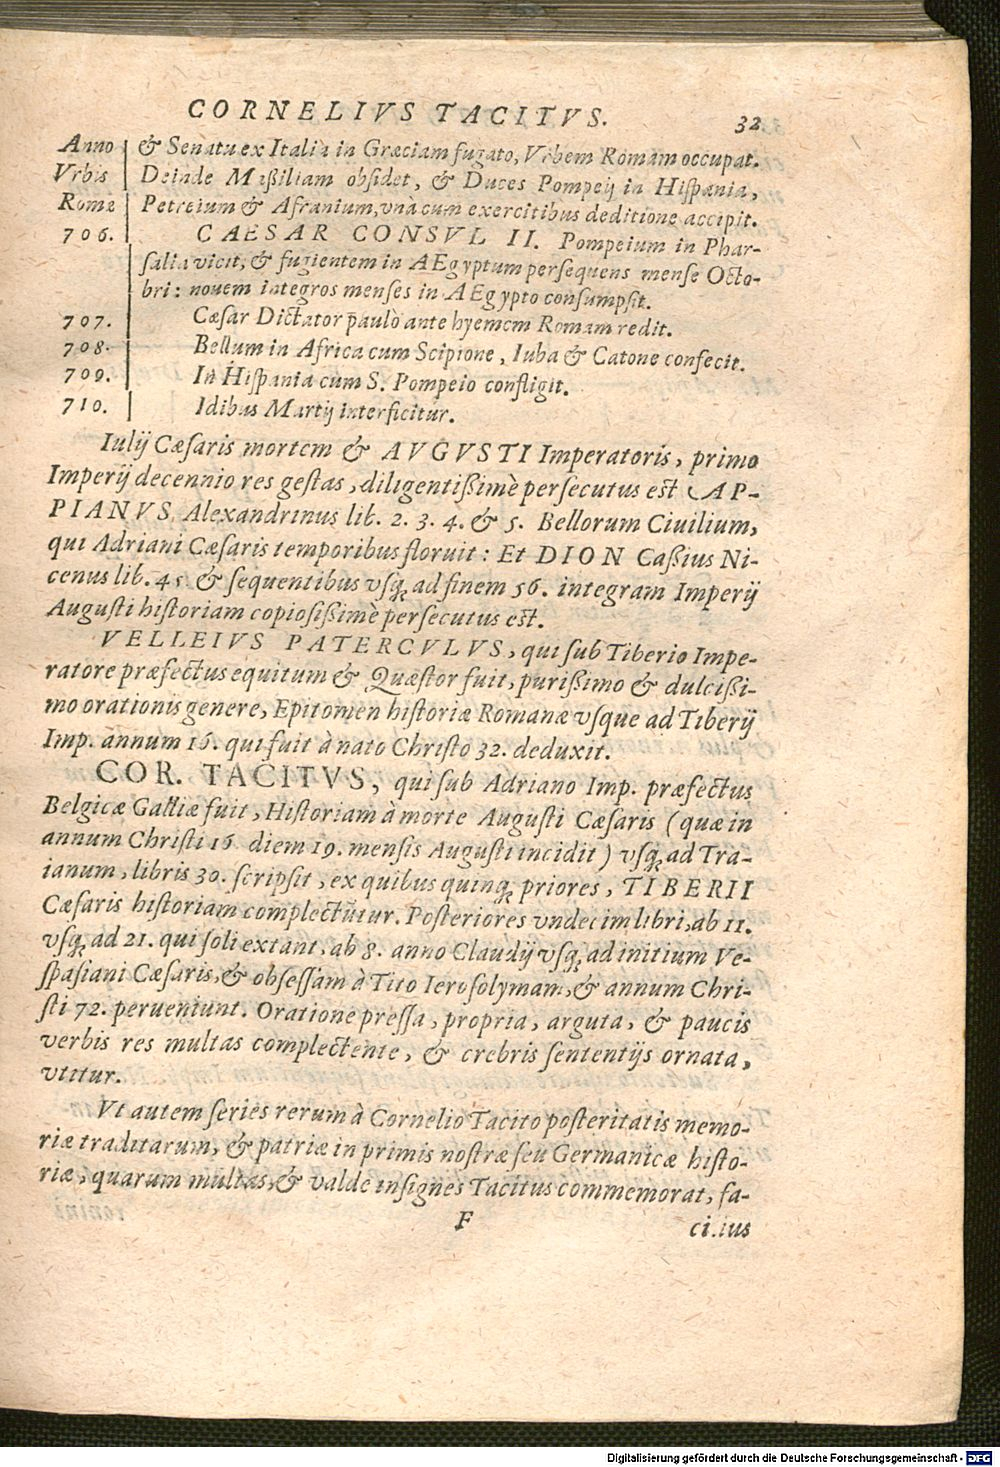 CORNELIVS TACITVS.
32
Anno & Senatu ex Italia in Græciam fugato, Vrbem Romam occupat.
Vrbis Deinde Maßiliam obsidet, & Duces Pompeij in Hispania,
Romæ Petreium & Afranium, vnà cum exercitibus deditione accipit.
706. CAESAR CONSVL II. Pompeium in Phar-
salia vicit, & fugientem in AEgyptum persequens mense Octo-
bri: nouem integros menses in AEgypto consumpsit.
707. Cæsar Dictator paulò ante hyemem Romam redit.
708. Bellum in Africa cum Scipione, Iuba & Catone confecit.
709. In Hispania cum S. Pompeio confligit.
710. Idibus Martij interficitur.
Iulij Cæsaris mortem & AVGVSTI Imperatoris, primo
Imperij decennio res gestas, diligentißimè persecutus est AP-
PIANVS Alexandrinus lib. 2. 3. 4. & 5. Bellorum Ciuilium,
qui Adriani Cæsaris temporibus floruit: Et DION Caßius Ni-
cenus lib. 45 & sequentibus vsq; ad finem 56. integram Imperij
Augusti historiam copiosißimè persecutus est.
VELLEIVS PATERCVLVS, qui sub Tiberio Impe-
ratore præfectus equitum & Quæstor fuit, purißimo & dulcißi-
mo orationis genere, Epitomen historiæ Romanæ vsque ad Tiberij
Imp. annum 16. qui fuit à nato Christo 32. deduxit.
COR. TACITVS, qui sub Adriano Imp. præfectus
Belgicæ Galliæ fuit, Historiam à morte Augusti Cæsaris (quæ in
annum Christi 16 diem 19. mensis Augusti incidit) vsq; ad Tra-
ianum, libris 30. scripsit, ex quibus quinq; priores, TIBERII
Cæsaris historiam complectũtur. Posteriores vndecim libri, ab 11.
vsq; ad 21. qui soli extant, ab 8. anno Claudij vsq; ad initium Ve-
spasiani Cæsaris, & obsessam à Tito Ierosolymam, & annum Chri-
sti 72. perueniunt. Oratione pressa, propria, arguta, & paucis
verbis res multas complectente, & crebris sententijs ornata,
vtitur.
Vt autem series rerum à Cornelio Tacito posteritatis memo-
riæ traditarum, & patriæ in primis nostræ seu Germanicæ histo-
riæ, quarum multas, & valde insignes Tacitus commemorat, fa-
F
ci.ius
Digitalisierung gefördert durch die Deutsche Forschungsgemeinschaft - DFG